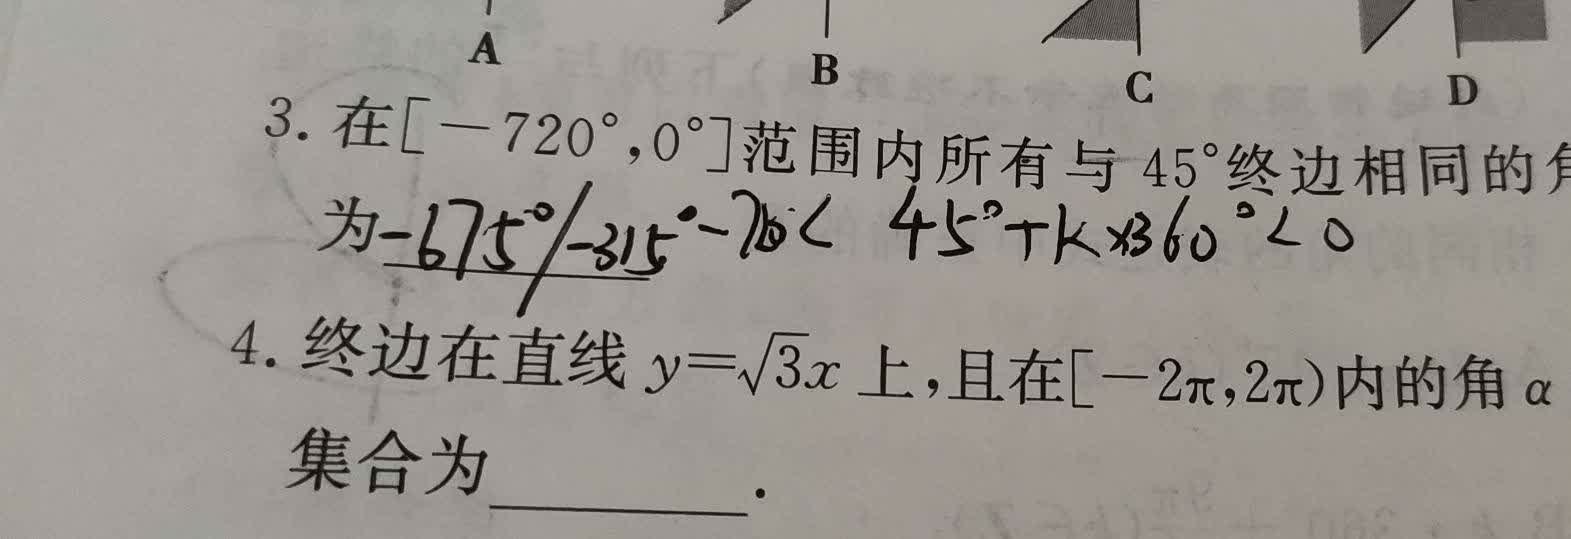 A B C D
3. 在[－720°,0°]范围内所有与45°终边相同的角
为-675°/-315° -720< 45°+k×360°<0
4. 终边在直线 y=√3x 上,且在[－2π,2π)内的角 α
集合为______.